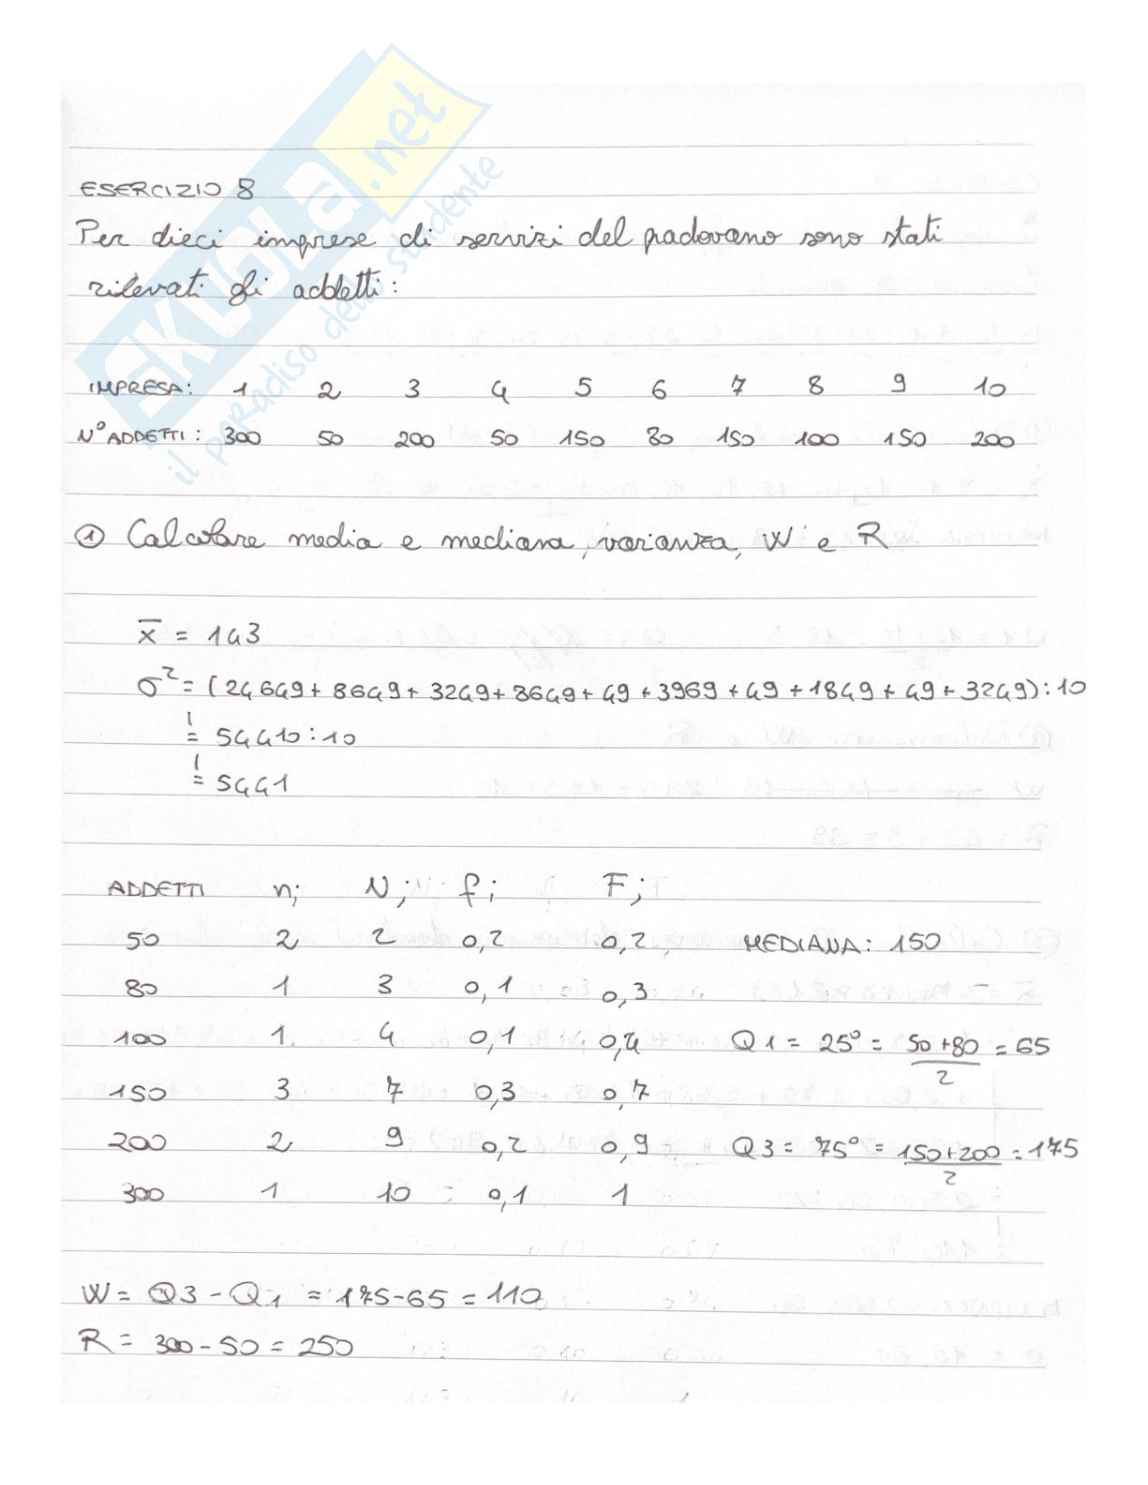 SKUOLA.net
il paradiso dello studente
ESERCIZIO 8
Per dieci imprese di servizi del padovano sono stati
rilevati gli addetti:
IMPRESA: 1 2 3 4 5 6 7 8 9 10
N° ADDETTI: 300 50 200 50 150 80 150 100 150 200
① Calcolare media e mediana, varianza, W e R
x̄ = 143
σ² = (24649 + 8649 + 3249 + 8649 + 49 + 3969 + 49 + 1849 + 49 + 3249) : 10
= 54410 : 10
= 5441
ADDETTI nj Nj fj Fj
50 2 2 0,2 0,2 MEDIANA: 150
80 1 3 0,1 0,3
100 1 4 0,1 0,4 Q1 = 25° = (50+80)/2 = 65
150 3 7 0,3 0,7
200 2 9 0,2 0,9 Q3 = 75° = (150+200)/2 = 175
300 1 10 0,1 1
W = Q3 - Q1 = 175 - 65 = 110
R = 300 - 50 = 250